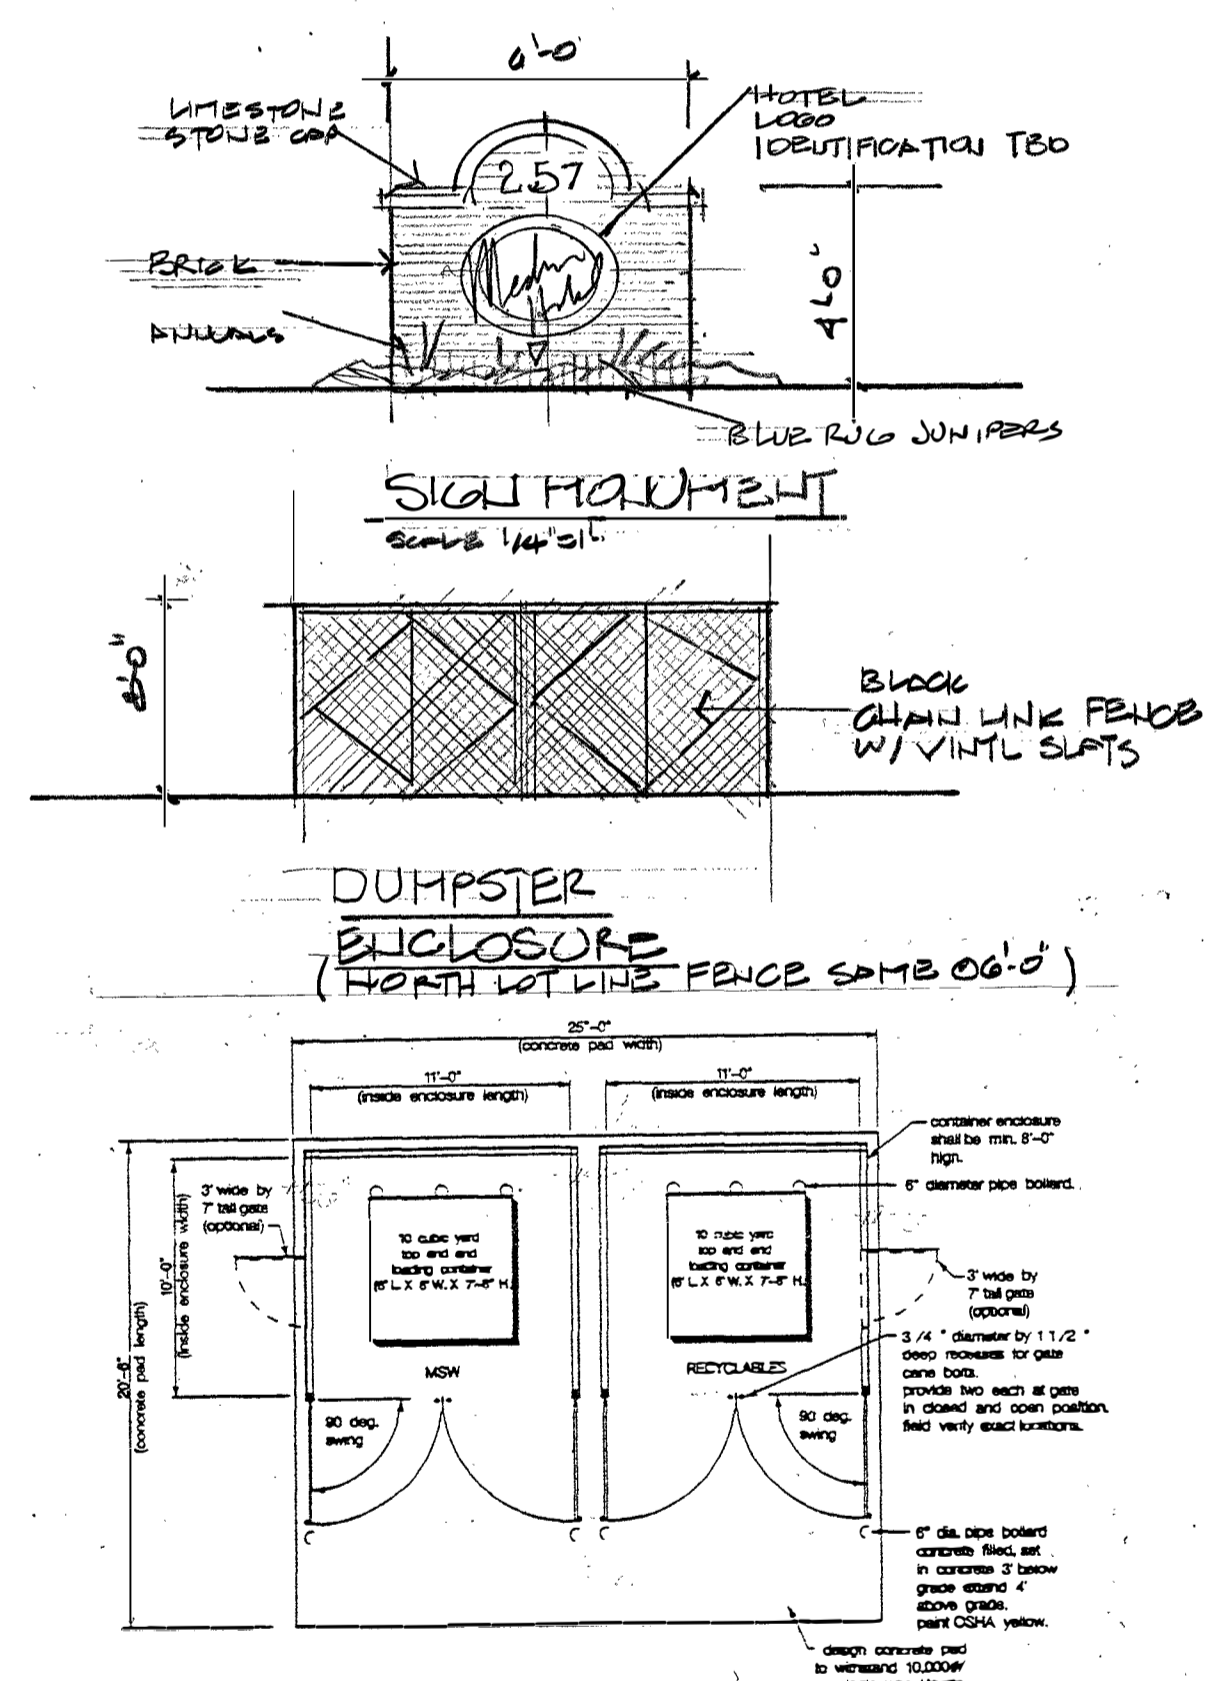 6'-0"
LIMESTONE
STONE CAP
HOTEL
LOGO
IDENTIFICATION TBD
257
BRICK
ANNUALS
4'-0"
BLUE RUG JUNIPERS
SIGN MONUMENT
SCALE 1/4"=1'
BLACK
CHAIN LINK FENCE
W/ VINYL SLATS
DUMPSTER
ENCLOSURE
(NORTH LOT LINE FENCE SAME @6'-0")
25'-0"
(concrete pad width)
11'-0"
(inside enclosure length)
11'-0"
(inside enclosure length)
container enclosure
shall be min. 8'-0"
high.
6" diameter pipe bollard.
3' wide by
7' tall gate
(optional)
10'-0"
(inside enclosure width)
20'-6"
(concrete pad length)
10 cubic yard
top and end
loading container
10 cubic yard
top and end
loading container
3' wide by
7' tall gate
(optional)
MSW
RECYCLABLES
3/4 " diameter by 1 1/2 "
deep recesses for gate
cane bolts.
provide two each at gate
in closed and open position.
field verify exact locations.
90 deg.
swing
90 deg.
swing
6" dia. pipe bollard
concrete filled, set
in concrete 3' below
grade extend 4'
above grade.
paint OSHA yellow.
design concrete pad
to withstand 10,000#